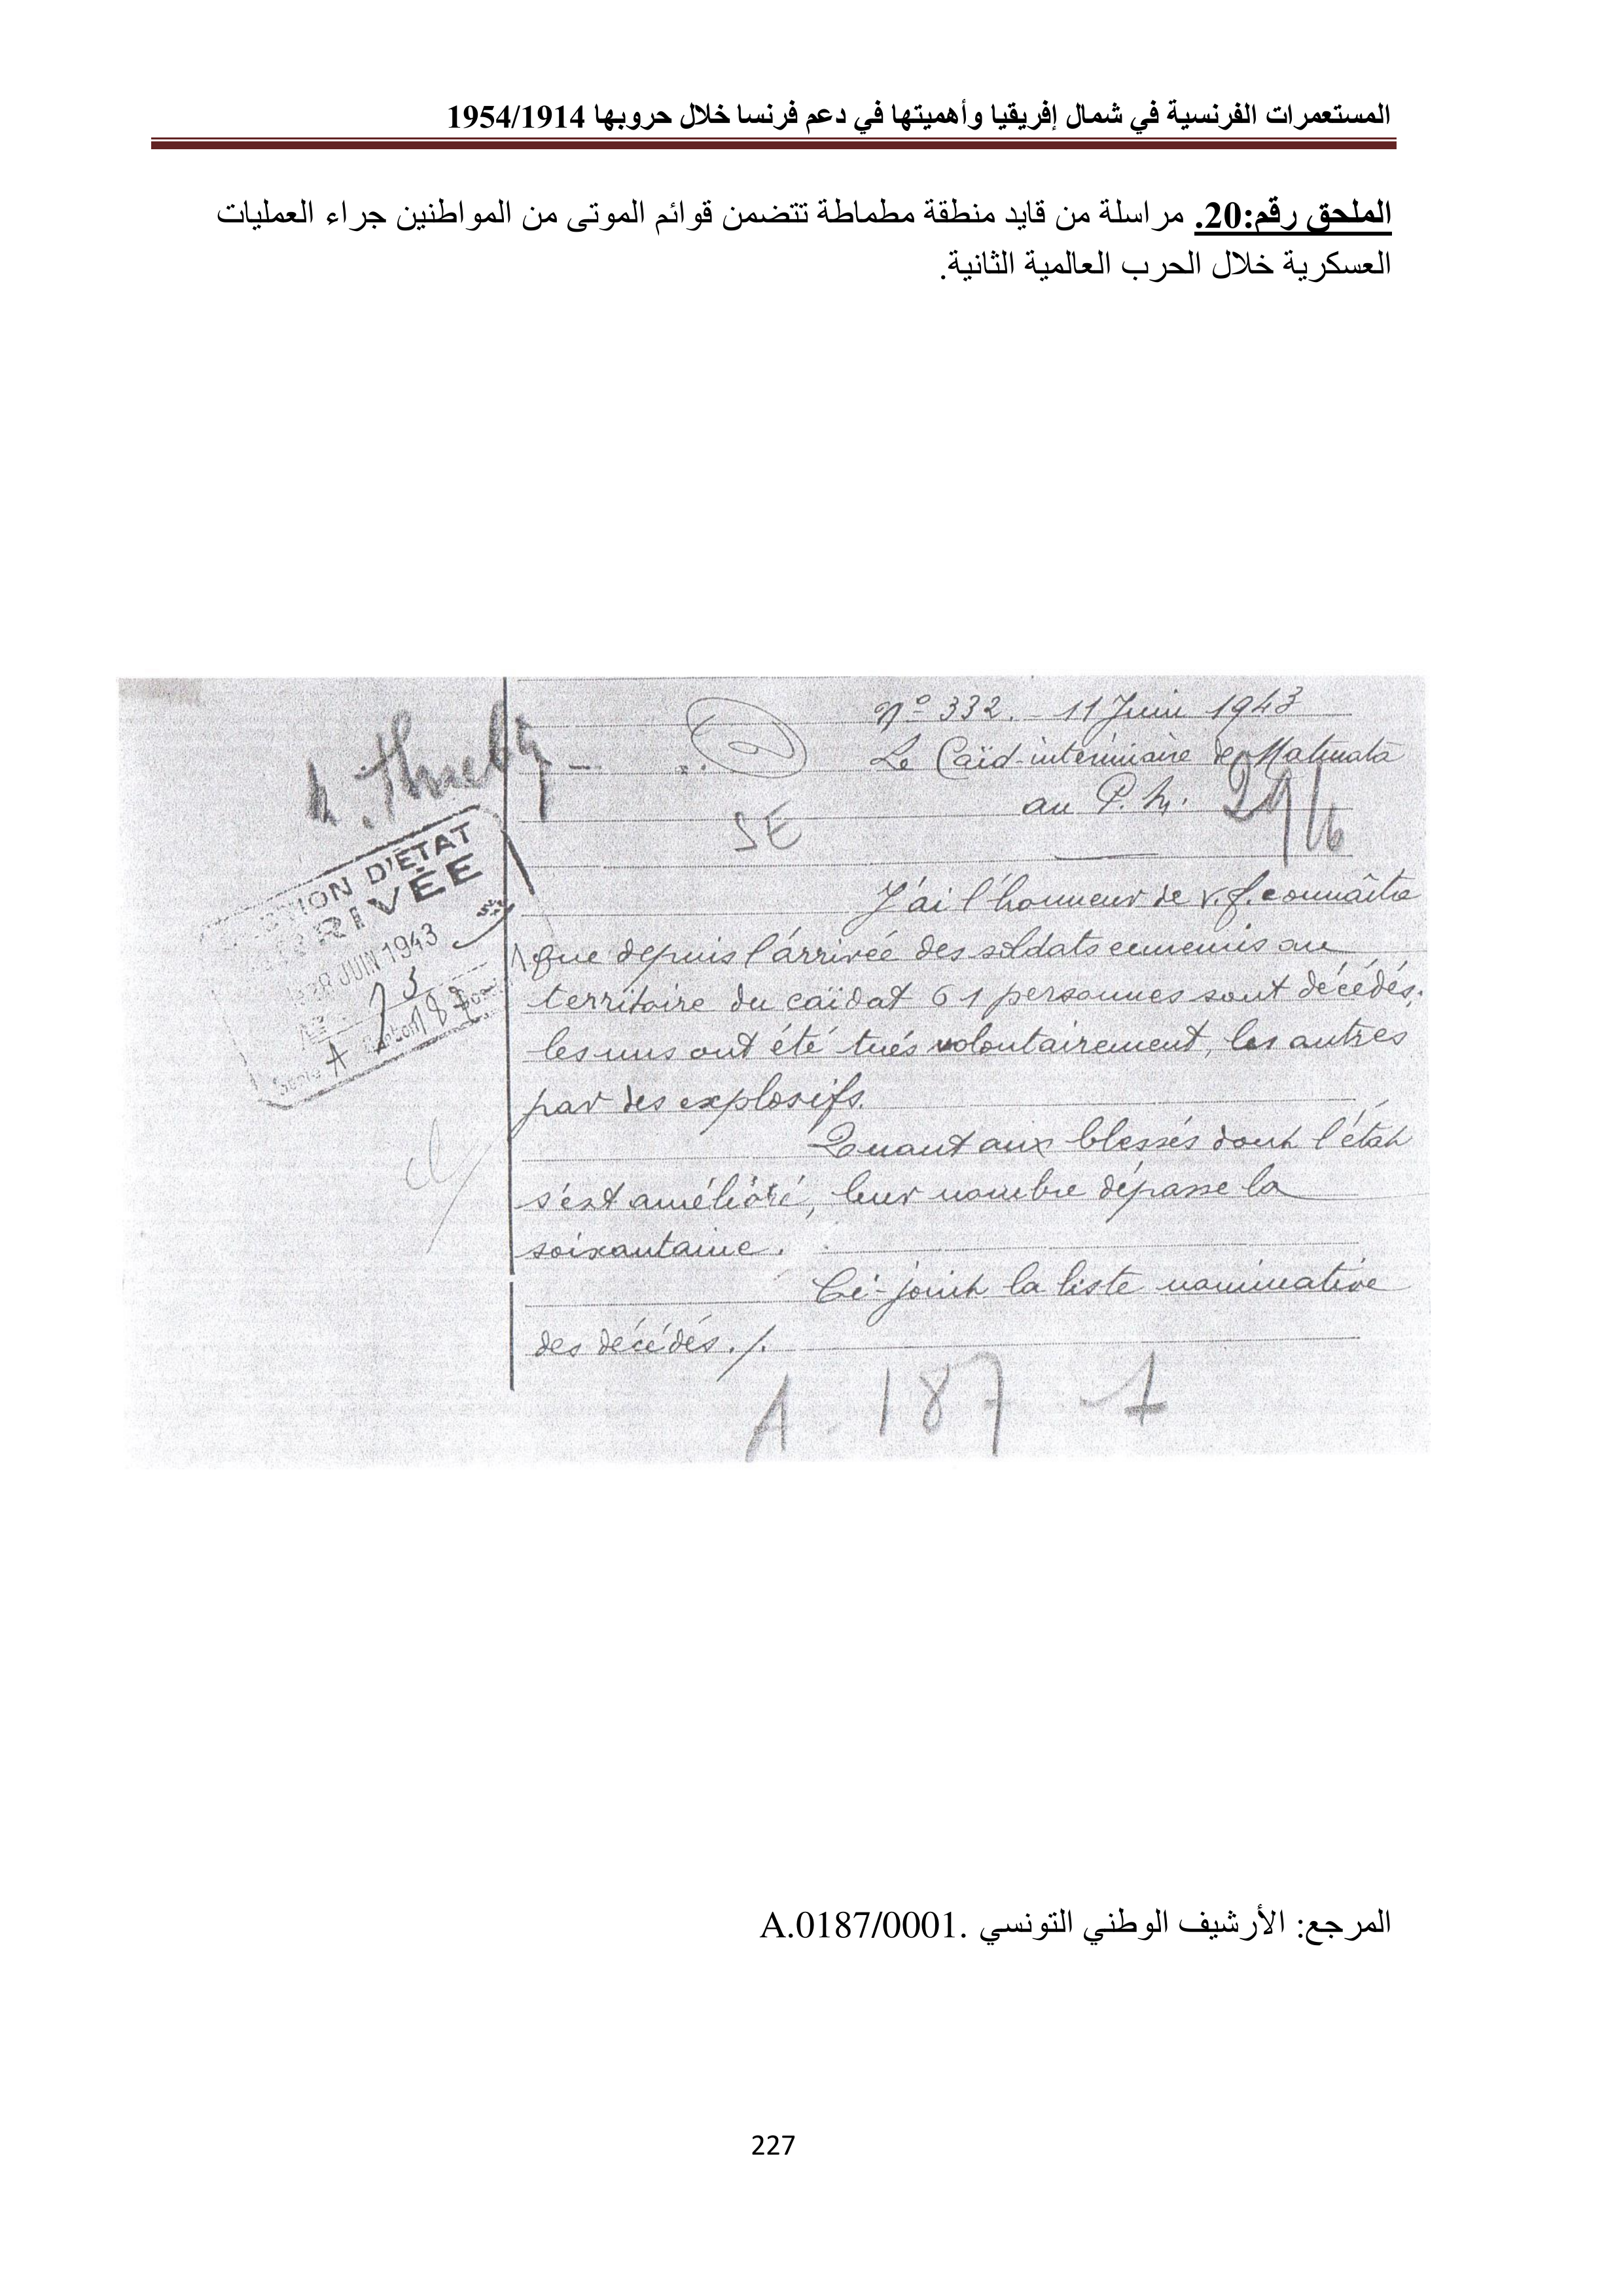 المستعمرات الفرنسية في شمال إفريقيا وأهميتها في دعم فرنسا خلال حروبها 1954/1914
الملحق رقم:20. مراسلة من قايد منطقة مطماطة تتضمن قوائم الموتى من المواطنين جراء العمليات
العسكرية خلال الحرب العالمية الثانية.
N° 332. - 11 Juin 1943
Le Caïd-intérimaire de Matmata
au P. M.
29/6
SE
D'ÉTAT
ARRIVÉE
28 JUIN 1943
73
Série A Carton 187
J'ai l'honneur de v. f. connaître
que depuis l'arrivée des soldats ennemis au
territoire du caïdat 61 personnes sont décédés.
les uns ont été tués volontairement, les autres
par des explosifs.
Quant aux blessés dont l'état
s'est amélioré, leur nombre dépasse la
soixantaine.
Ci-joint la liste nominative
des décédés ./.
A - 187 - 1
المرجع: الأرشيف الوطني التونسي .A.0187/0001
227